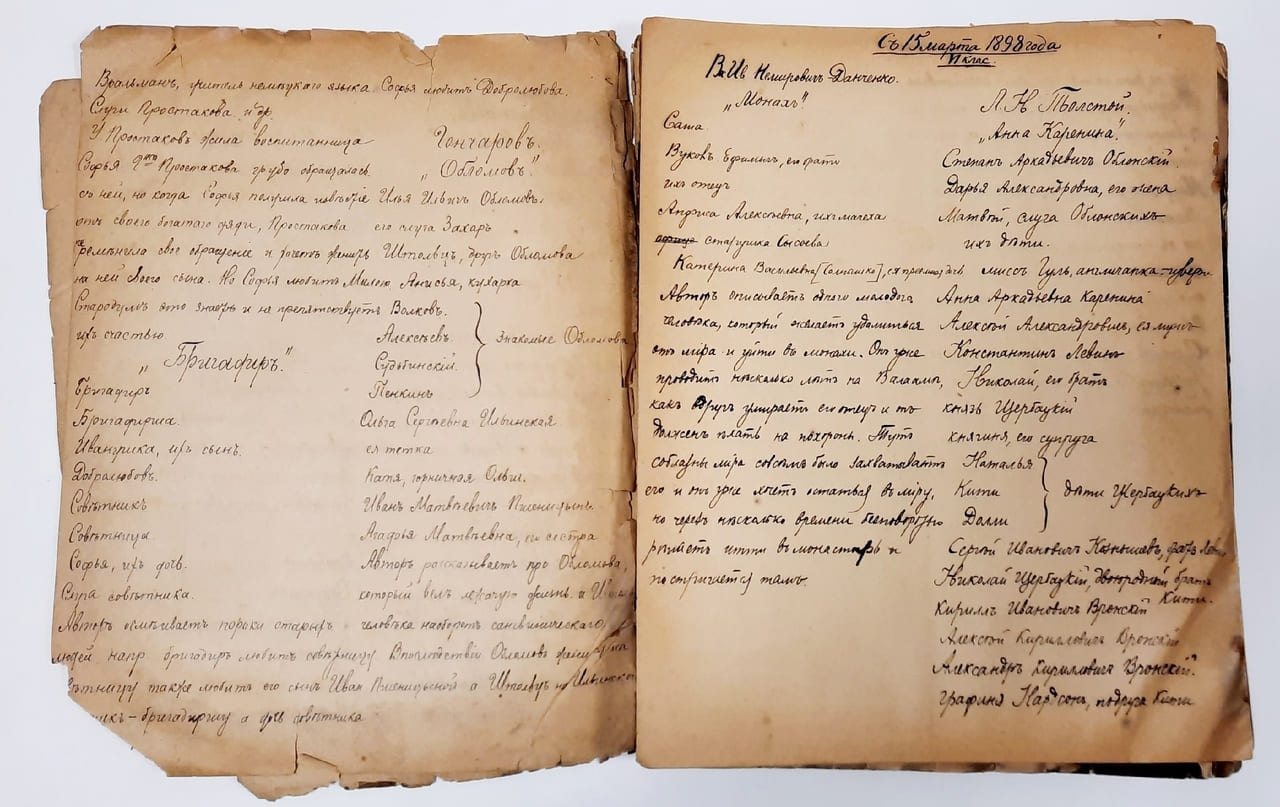 Вральманъ, учитель немецкаго языка Софья любитъ Добролюбова.
Слуги Простакова и др.
У Простаковъ жила воспитанница
Софья Простакова грубо обращалась
съ ней, но когда Софья получила извѣстіе
отъ своего богатаго дяди, Простакова
перемѣнила свое обращеніе и хочетъ женить
на ней своего сына. Но Софья любитъ Милона,
Стародумъ это знаетъ и не препятствуетъ
ихъ счастью
„Бригадиръ."
Бригадиръ
Бригадирша.
Иванушка, ихъ сынъ.
Добролюбовъ.
Совѣтникъ
Совѣтница.
Софья, ихъ дочь.
Слуга совѣтника.
Авторъ осмѣиваетъ пороки старыхъ
людей напр. бригадиръ любитъ совѣтницу
совѣтницу также любитъ его сынъ Иван
бригадиршу а дочь совѣтника
Гончаровъ.
„Обломовъ."
Илья Ильичъ Обломовъ.
его слуга Захаръ
Штольцъ, другъ Обломова
Анисья, кухарка
Волковъ.
Алексѣевъ.
Судьбинскій.
Пенкинъ
знакомые Обломова
Ольга Сергѣевна Ильинская.
ея тетка
Катя, горничная Ольги.
Иванъ Матвѣевичъ Пшеницынъ.
Агафья Матвѣевна, его сестра
Авторъ разсказываетъ про Обломова,
который велъ лежачую жизнь. а
человѣка наоборотъ сангвиническаго
Впослѣдствіи Обломовъ
Пшеницыной а Штольцъ на Ильинской
Съ 15 марта 1898 года
VI клас.
В. Ив Немировичъ-Данченко.
„Монахъ."
Саша
Вуковъ Ефимычъ, его братъ
ихъ отецъ
Анфиса Алексѣевна, ихъ мачеха
старушка Сысоева
Катерина Васильевна [Салташко], ея
Авторъ описываетъ одного молодога
человѣка, который желаетъ удолиться
отъ міра и уйти въ монахи. Онъ уже
проводитъ нѣсколько лѣтъ на Валаамѣ,
какъ вдругъ умираетъ его отецъ и онъ
долженъ ѣхать на похороны. Тутъ
соблазны міра совсѣмъ было захватываютъ
его и онъ уже хочетъ остаться въ міру,
но черезъ нѣсколько времени безповоротно
рѣшаетъ итти въ монастырь и
постригается тамъ.
Л. Н Толстой.
„Анна Каренина."
Степанъ Аркадьевичъ Облонскій.
Дарья Александровна, его жена
Матвѣй, слуга Облонскихъ
ихъ дѣти.
миссъ Гуль, англичанка-гуверн.
Анна Аркадьевна Каренина
Алексѣй Александровичъ, ея мужъ
Константинъ Левинъ
Николай, его братъ
князь Щербацкій
княгиня, его супруга
Наталья
Кити
Долли
дѣти Щербацкихъ
Сергѣй Ивановичъ Кознышевъ,
Николай Щербацкій, двоюродный братъ
Кити.
Кириллъ Ивановичъ Вронскій
Алексѣй Кирилловичъ Вронскій
Александръ Кирилловичъ Вронскій.
графиня Нардсонъ, подруга Кити